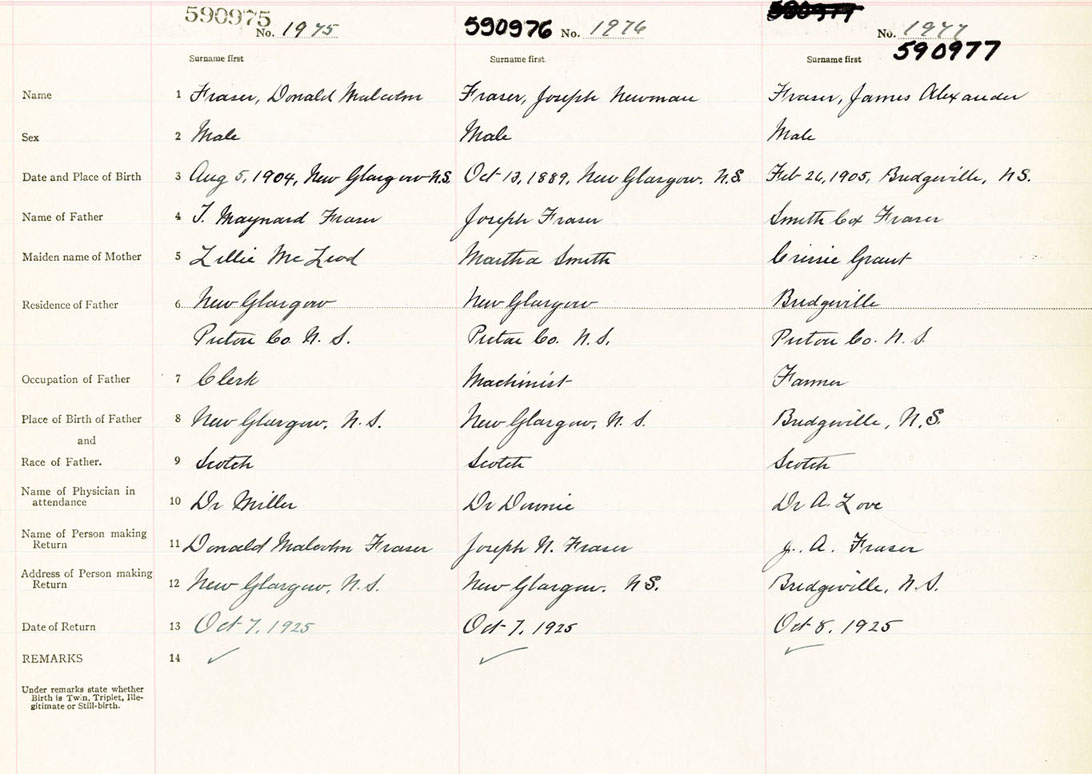 590975 No. 1975 590976 No. 1976 590977 No. 1977
590977
Surname first Surname first Surname first
Name 1 Fraser, Donald Malcolm Fraser, Joseph Newman Fraser, James Alexander
Sex 2 Male Male Male
Date and Place of Birth 3 Aug 5, 1904, New Glasgow N.S. Oct 13, 1889, New Glasgow, N.S. Feb 26, 1905, Bridgeville, N.S.
Name of Father 4 T. Maynard Fraser Joseph Fraser Smith Cox Fraser
Maiden name of Mother 5 Lillie McLeod Martha Smith Cissie Grant
Residence of Father 6 New Glasgow New Glasgow Bridgeville
Pictou Co. N.S. Pictou Co. N.S. Pictou Co. N.S.
Occupation of Father 7 Clerk Machinist Farmer
Place of Birth of Father 8 New Glasgow, N.S. New Glasgow, N.S. Bridgeville, N.S.
and
Race of Father. 9 Scotch Scotch Scotch
Name of Physician in attendance 10 Dr Miller Dr Dr A. Love
Name of Person making Return 11 Donald Malcolm Fraser Joseph N. Fraser J. A. Fraser
Address of Person making Return 12 New Glasgow, N.S. New Glasgow. N.S. Bridgeville, N.S.
Date of Return 13 Oct 7, 1925 Oct 7, 1925 Oct 8, 1925
REMARKS 14 ✓ ✓ ✓
Under remarks state whether
Birth is Twin, Triplet, Ille-
gitimate or Still-birth.